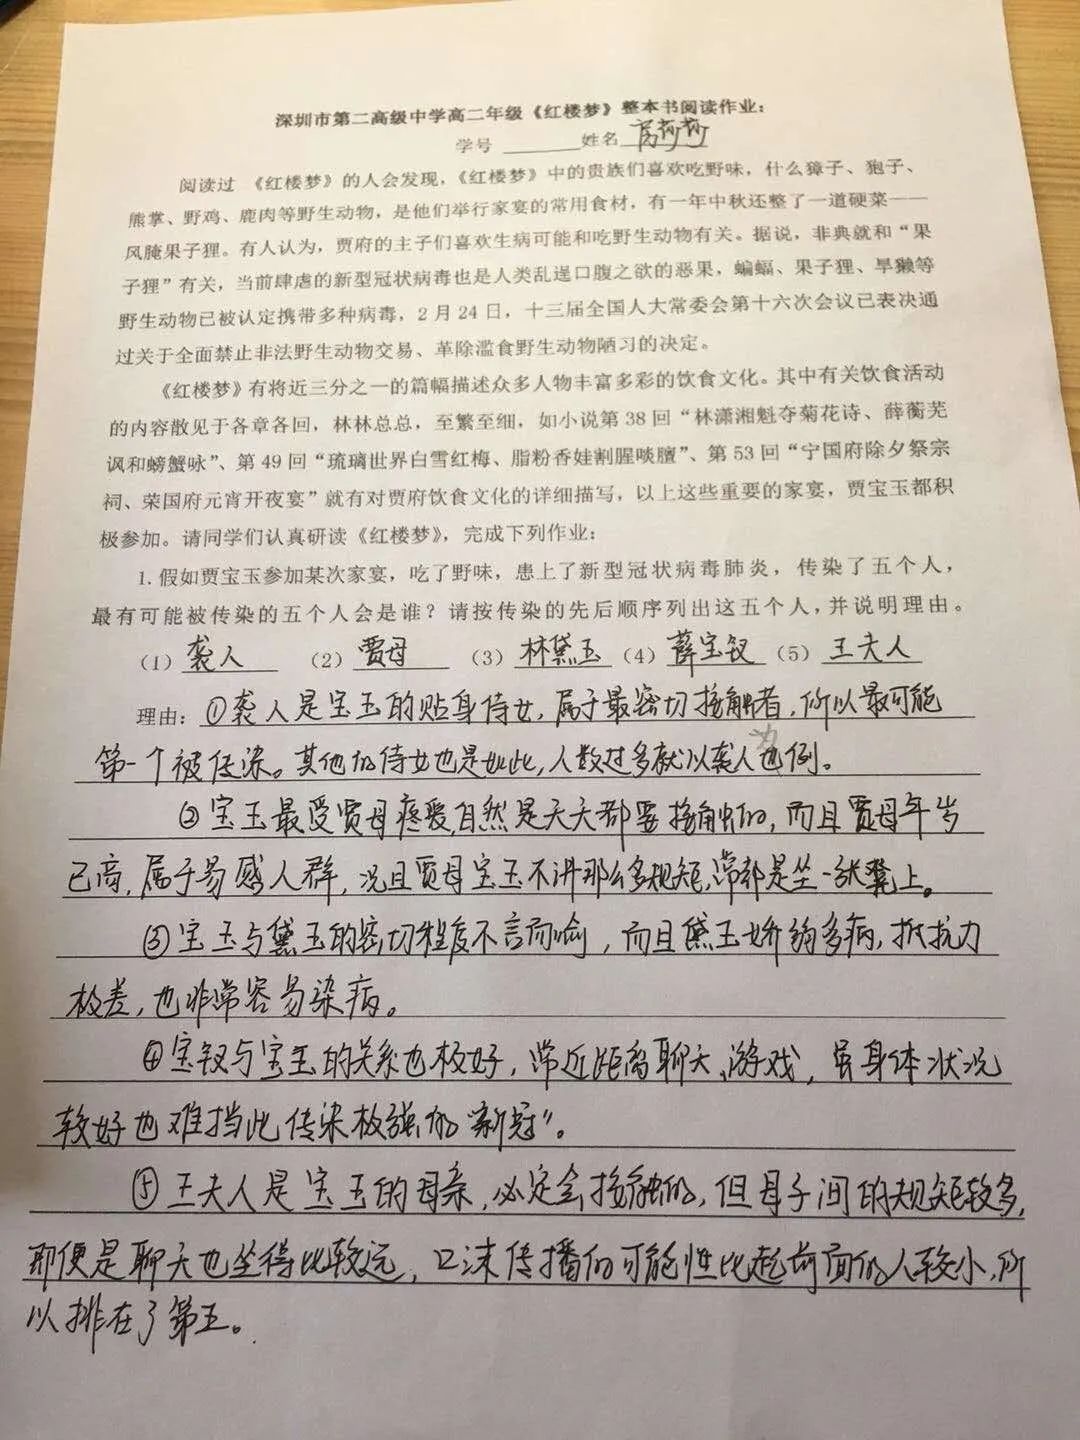 深圳市第二高级中学高二年级《红楼梦》整本书阅读作业：
学号 ________姓名
阅读过 《红楼梦》的人会发现，《红楼梦》中的贵族们喜欢吃野味，什么獐子、狍子、
熊掌、野鸡、鹿肉等野生动物，是他们举行家宴的常用食材，有一年中秋还整了一道硬菜——
风腌果子狸。有人认为，贾府的主子们喜欢生病可能和吃野生动物有关。据说，非典就和“果
子狸”有关，当前肆虐的新型冠状病毒也是人类乱逞口腹之欲的恶果，蝙蝠、果子狸、旱獭等
野生动物已被认定携带多种病毒，2 月 24 日，十三届全国人大常委会第十六次会议已表决通
过关于全面禁止非法野生动物交易、革除滥食野生动物陋习的决定。
《红楼梦》有将近三分之一的篇幅描述众多人物丰富多彩的饮食文化。其中有关饮食活动
的内容散见于各章各回，林林总总，至繁至细，如小说第 38 回“林潇湘魁夺菊花诗、薛蘅芜
讽和螃蟹咏”、第 49 回“琉璃世界白雪红梅、脂粉香娃割腥啖膻”、第 53 回“宁国府除夕祭宗
祠、荣国府元宵开夜宴”就有对贾府饮食文化的详细描写，以上这些重要的家宴，贾宝玉都积
极参加。请同学们认真研读《红楼梦》，完成下列作业：
1. 假如贾宝玉参加某次家宴，吃了野味，患上了新型冠状病毒肺炎，传染了五个人，
最有可能被传染的五个人会是谁？请按传染的先后顺序列出这五个人，并说明理由。
（1）袭人 （2）贾母 （3）林黛玉 （4）薛宝钗 （5）王夫人
理由：①袭人是宝玉的贴身侍女，属于最密切接触者，所以最可能
第一个被传染。其他的侍女也是如此，人数过多就以袭人为例。
②宝玉最受贾母疼爱，自然是天天都要接触的，而且贾母年岁
已高，属于易感人群，况且贾母宝玉不讲那么多规矩，常都是坐一张凳上。
③宝玉与黛玉的密切程度不言而喻，而且黛玉娇弱多病，抵抗力
极差，也非常容易染病。
④宝钗与宝玉的关系也极好，常近距离聊天、游戏，虽身体状况
较好也难挡此传染极强的“新冠”。
⑤王夫人是宝玉的母亲，必定会接触的，但母子间的规矩较多，
即便是聊天也坐得比较远，口沫传播的可能性比起前面的人较小，所
以排在了第五。